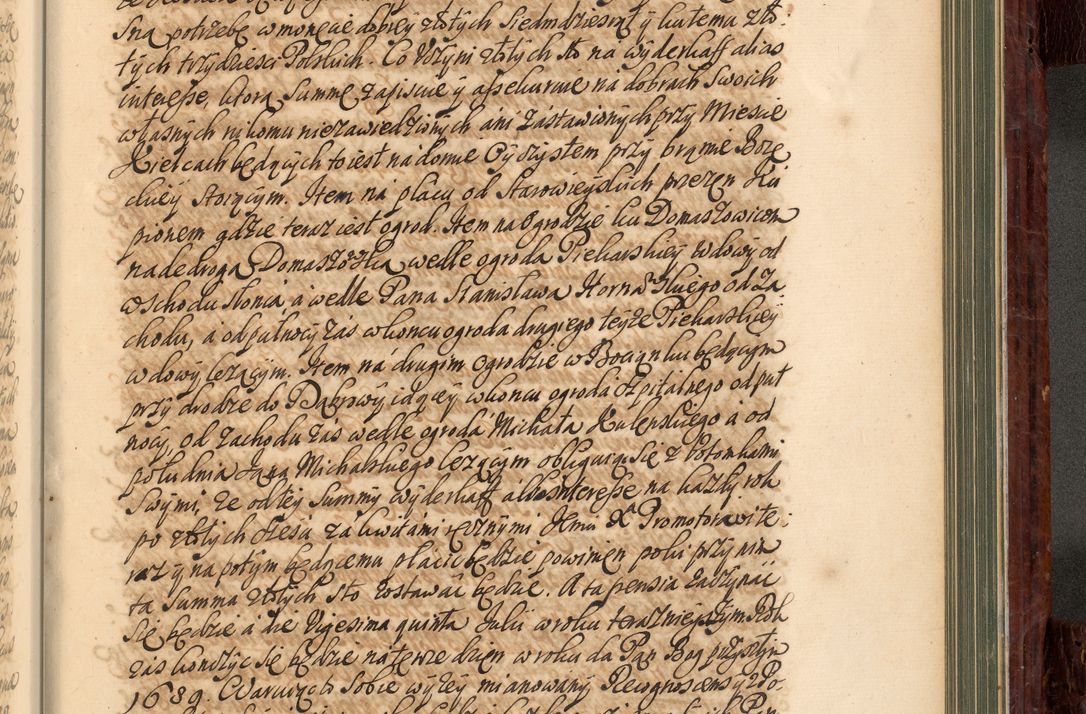 Sną potrzebę w monecie dobrey złotych Siedmdziesiąt y ku temu zło-
tych trzydziesci Polskich. Co Uczyni złotych sto na wyderkaff alias
interesse, ktorą Summę zapisuie y assekuruie na dobrach Swoich
własnych nikomu niezawiedzionych ani zastawionych przy Miescie
Kielcach będących to iest na domie Oyczystem przy bramie Boże
ckiey stoiącym. Item na placu od Starowieyskich przezen Ku
pionem gdzie teraz iest ogrod. Item na Ogrodzie ku Domaszowicom
nade drogą Domaszowską wedle ogroda Piekarskiey wdowy od
wschodu słonca, a wedle Pana Stanisława Horna skiego od Za
chodu, a od pułnocy zas w koncu ogroda drugiego teyże Piekarskiey
wdowy leżącym. Item na drugim Ogrodzie w Bocianku będącym
przy drodze do Dąbrowy idącey w koncu ogroda Szpitalnego od puł
nocy, od Zachodu zas wedle ogroda Michała Kulepskiego a od
południa Jana Michalskiego leżącym obliguiąc się z Potomkami
Swymi, że od tey Summy wyderkaff albo interesse na każdy rok
po złotych szesci za kwitami ręcznymi Jmci X Promotora wite
raz y na potym będącemu płacić będzie powinien poki przy nim
ta Summa złotych sto zostawać będzie. A ta pensia zaczynać
się będzie a die Vigesima quinta Julii w roku teraznieyszym Rok
zas konczyć się będzie na tęż dzien w roku da Pan Bog przyszłym
1689. Waruiąc to sobie wyżey mianowany Recognoscens y z Po-